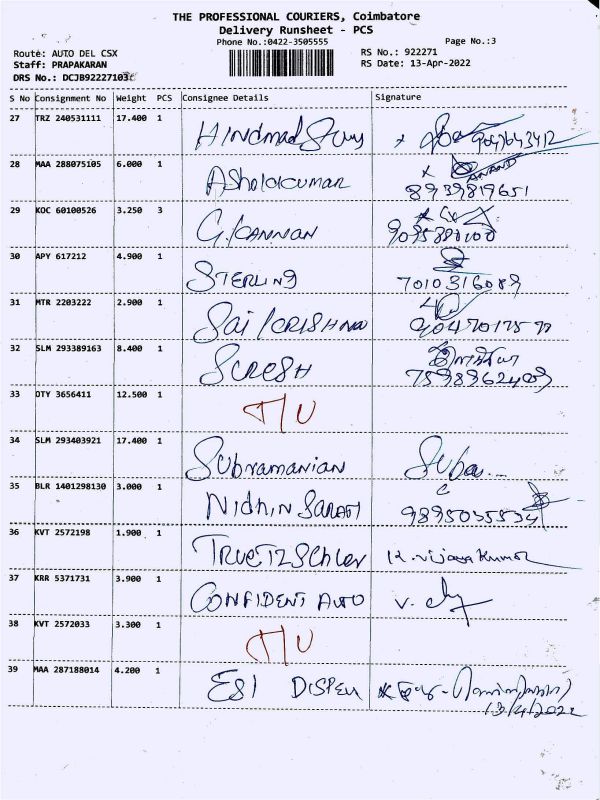 THE PROFESSIONAL COURIERS, Coimbatore
Delivery Runsheet - PCS
Phone No.:0422-3505555 Page No.:3
Route: AUTO DEL CSX RS No.: 922271
Staff: PRAPAKARAN RS Date: 13-Apr-2022
DRS No.: DCJB92227103
S No Consignment No Weight PCS Consignee Details Signature
27 TRZ 240531111 17.400 1
9047643412
28 MAA 288075105 6.000 1 Asholokumar ANAND
8939819651
29 KOC 60100526 3.250 3 G.KANNAN
30 APY 617212 4.900 1 STERLING
7010316089
31 MTR 2203222 2.900 1 SAI KRISHNA
32 SLM 293389163 8.400 1 SURESH
33 OTY 3656411 12.500 1 T/U
34 SLM 293403921 17.400 1 Subramanian Suba...
35 BLR 1401298130 3.000 1 Nidhin
9895035534
36 KVT 2572198 1.900 1 TRUETZSchler K. Vijaya Kumar
37 KRR 5371731 3.900 1 CONFIDENT AUTO V.
38 KVT 2572033 3.300 1 T/U
39 MAA 287188014 4.200 1 ESI DISPEN
13/4/2022